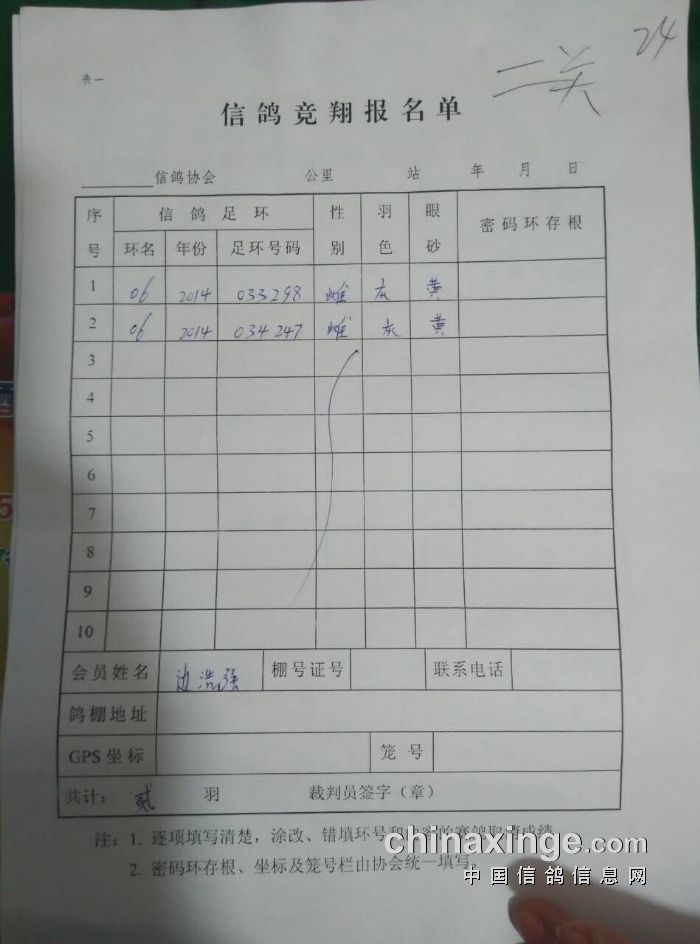 24
二关
表一
信鸽竞翔报名单
信鸽协会 公里 站 年 月 日
序号 信鸽足环 性别 羽色 眼砂 密码环存根
环名 年份 足环号码
1 06 2014 033298 雌 灰 黄
2 06 2014 034247 雌 灰 黄
3
4
5
6
7
8
9
10
会员姓名 边浩强 棚号证号 联系电话
鸽棚地址
GPS坐标 笼号
共计: 贰 羽 裁判员签字(章)
注: 1. 逐项填写清楚,涂改、错填环号和 的赛鸽取消成绩
2. 密码环存根、坐标及笼号栏由协会统一填写。
chinaxinge.com
中国信鸽信息网